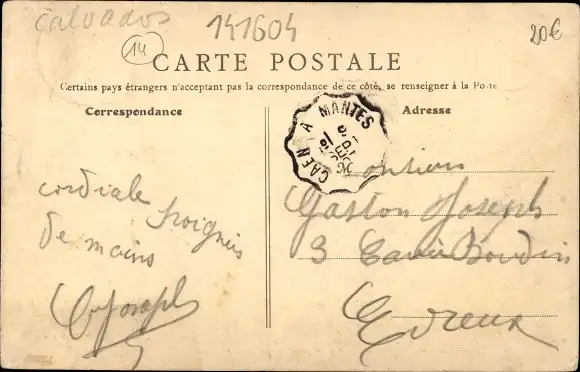 Calvados
141604
20€
14
CARTE POSTALE
Certains pays étrangers n'acceptant pas la correspondance de ce côté, se renseigner à la Poste
Correspondance
Adresse
CAEN A MANTES
cordiale poignée
de mains
Joseph
Monsieur
Gaston Joseph
3 Boudin
Evreux